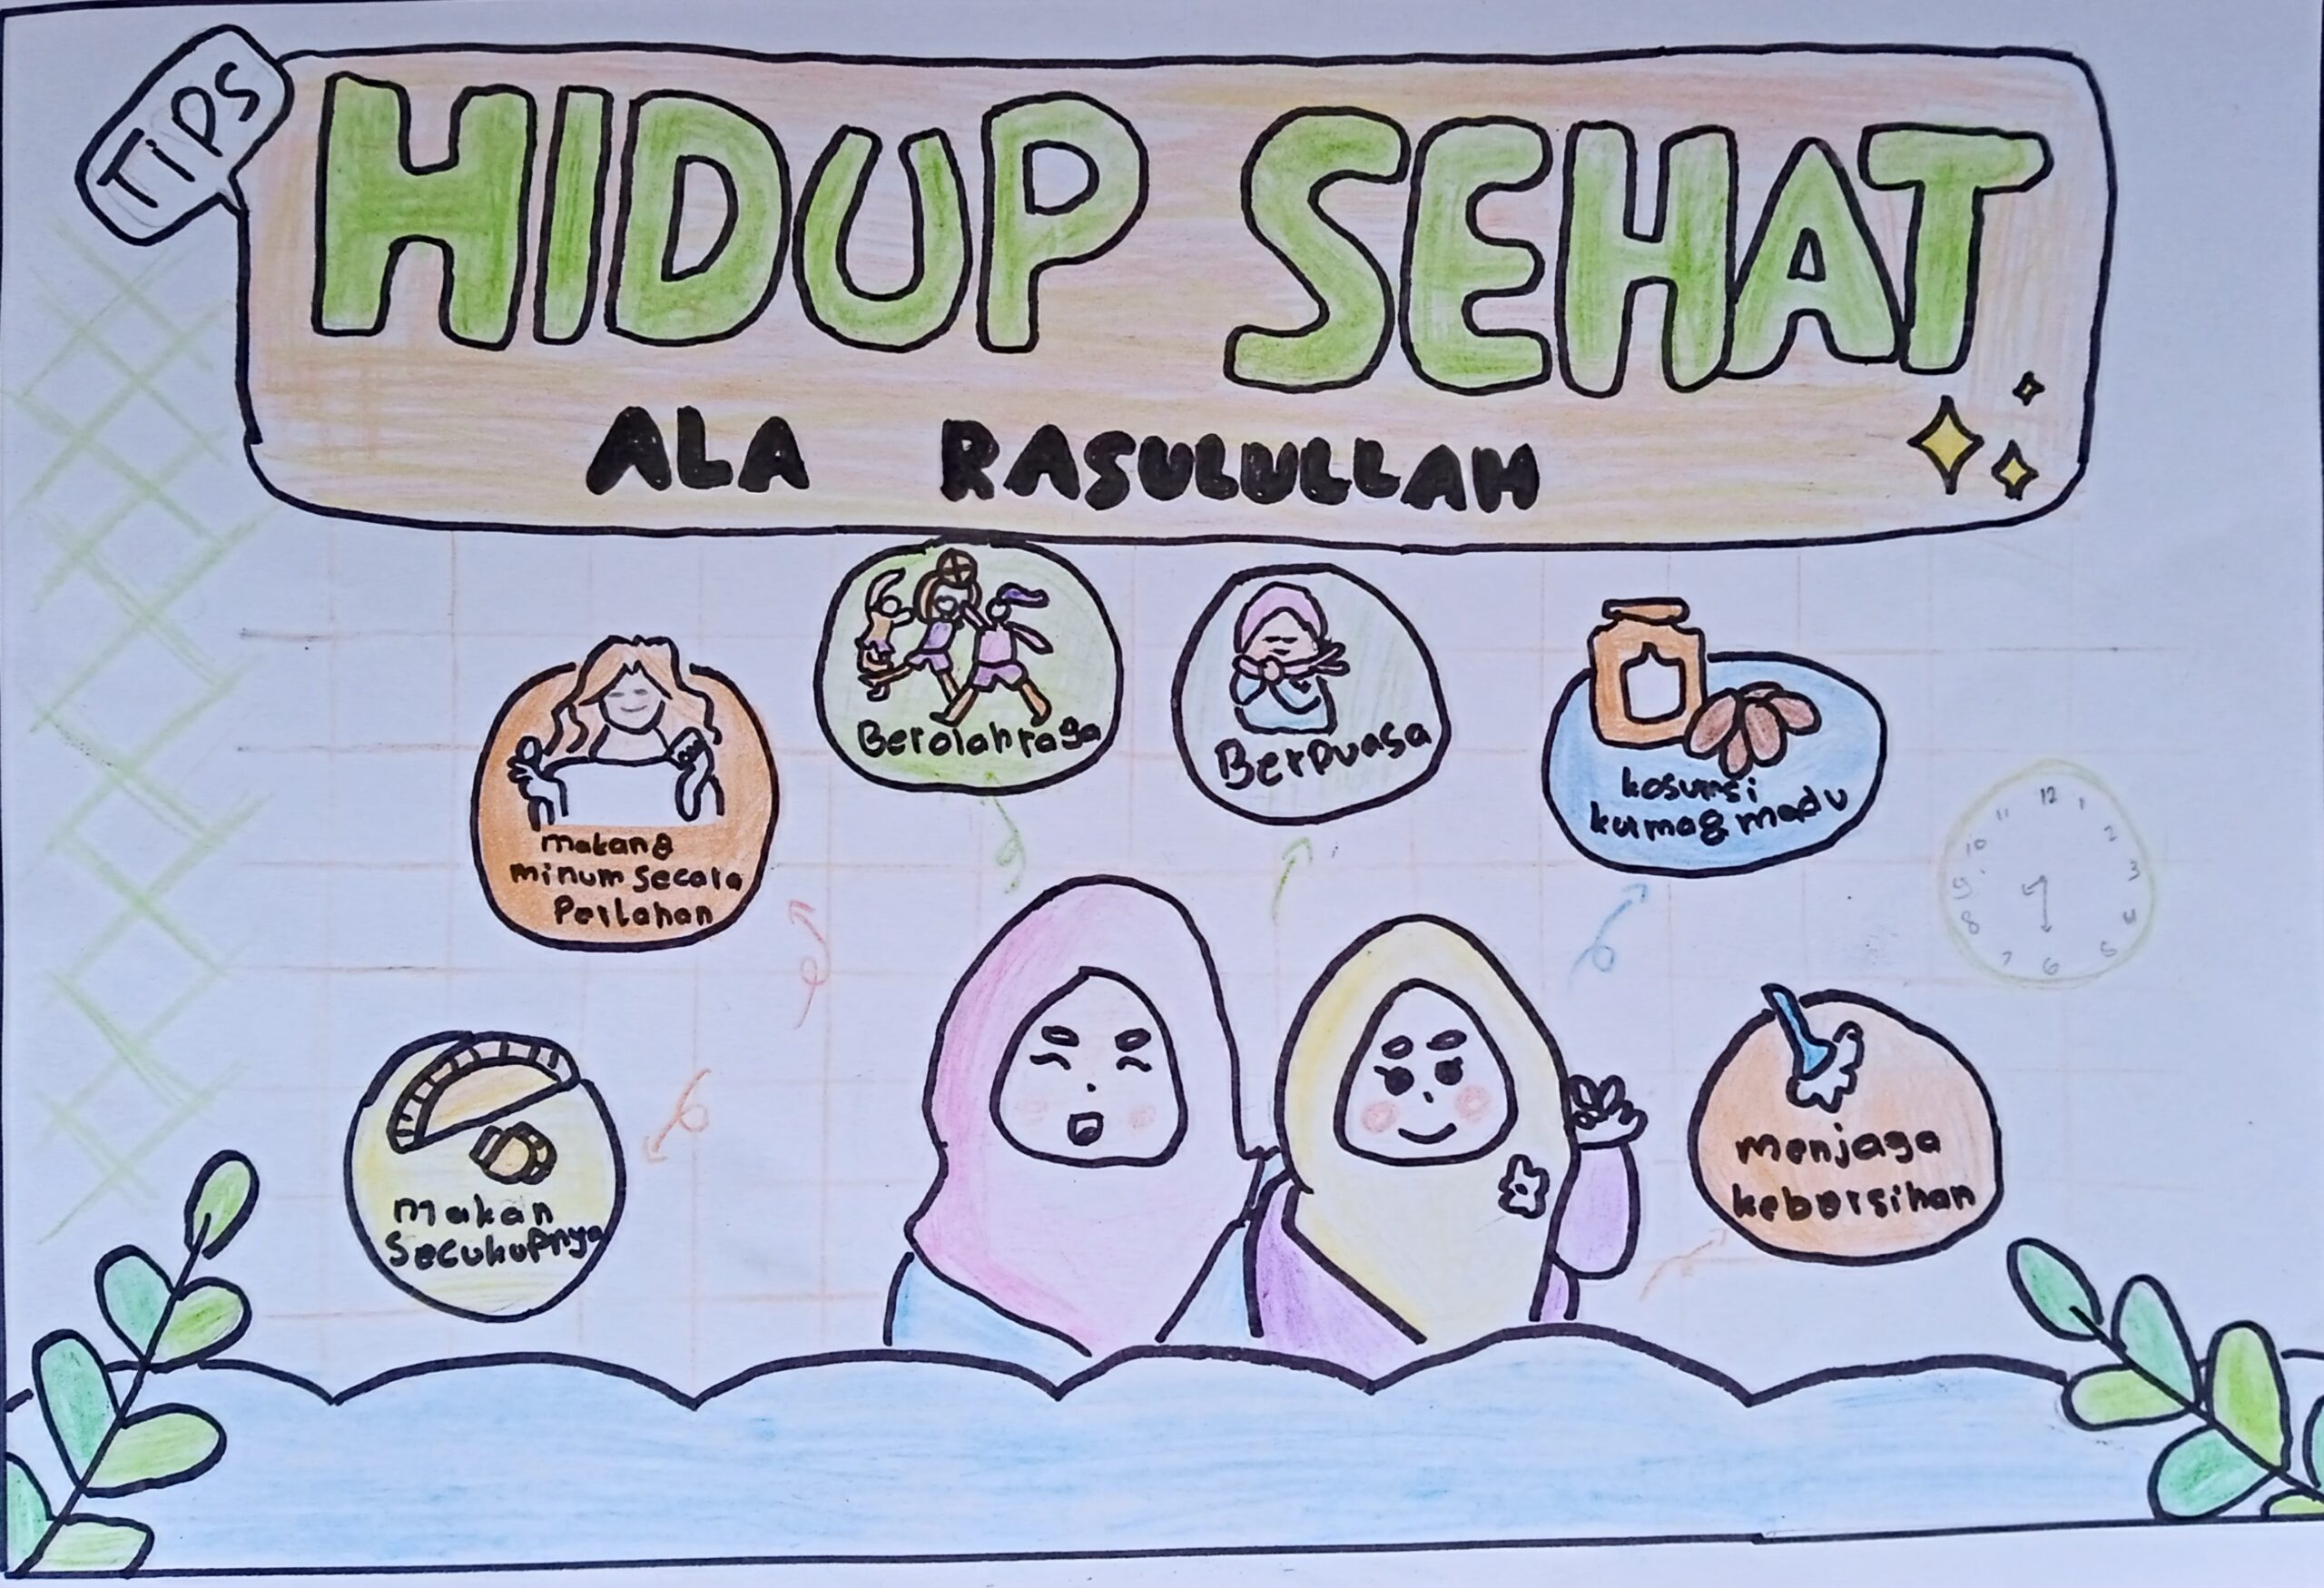 TIPS
HIDUP SEHAT
ALA RASULULLAH
Berolahraga
Berpuasa
kosumsi
kurma & madu
makan &
minum secara
Perlahan
makan
Secukupnya
menjaga
kebersihan
12
1
2
3
4
5
6
7
8
9
10
11